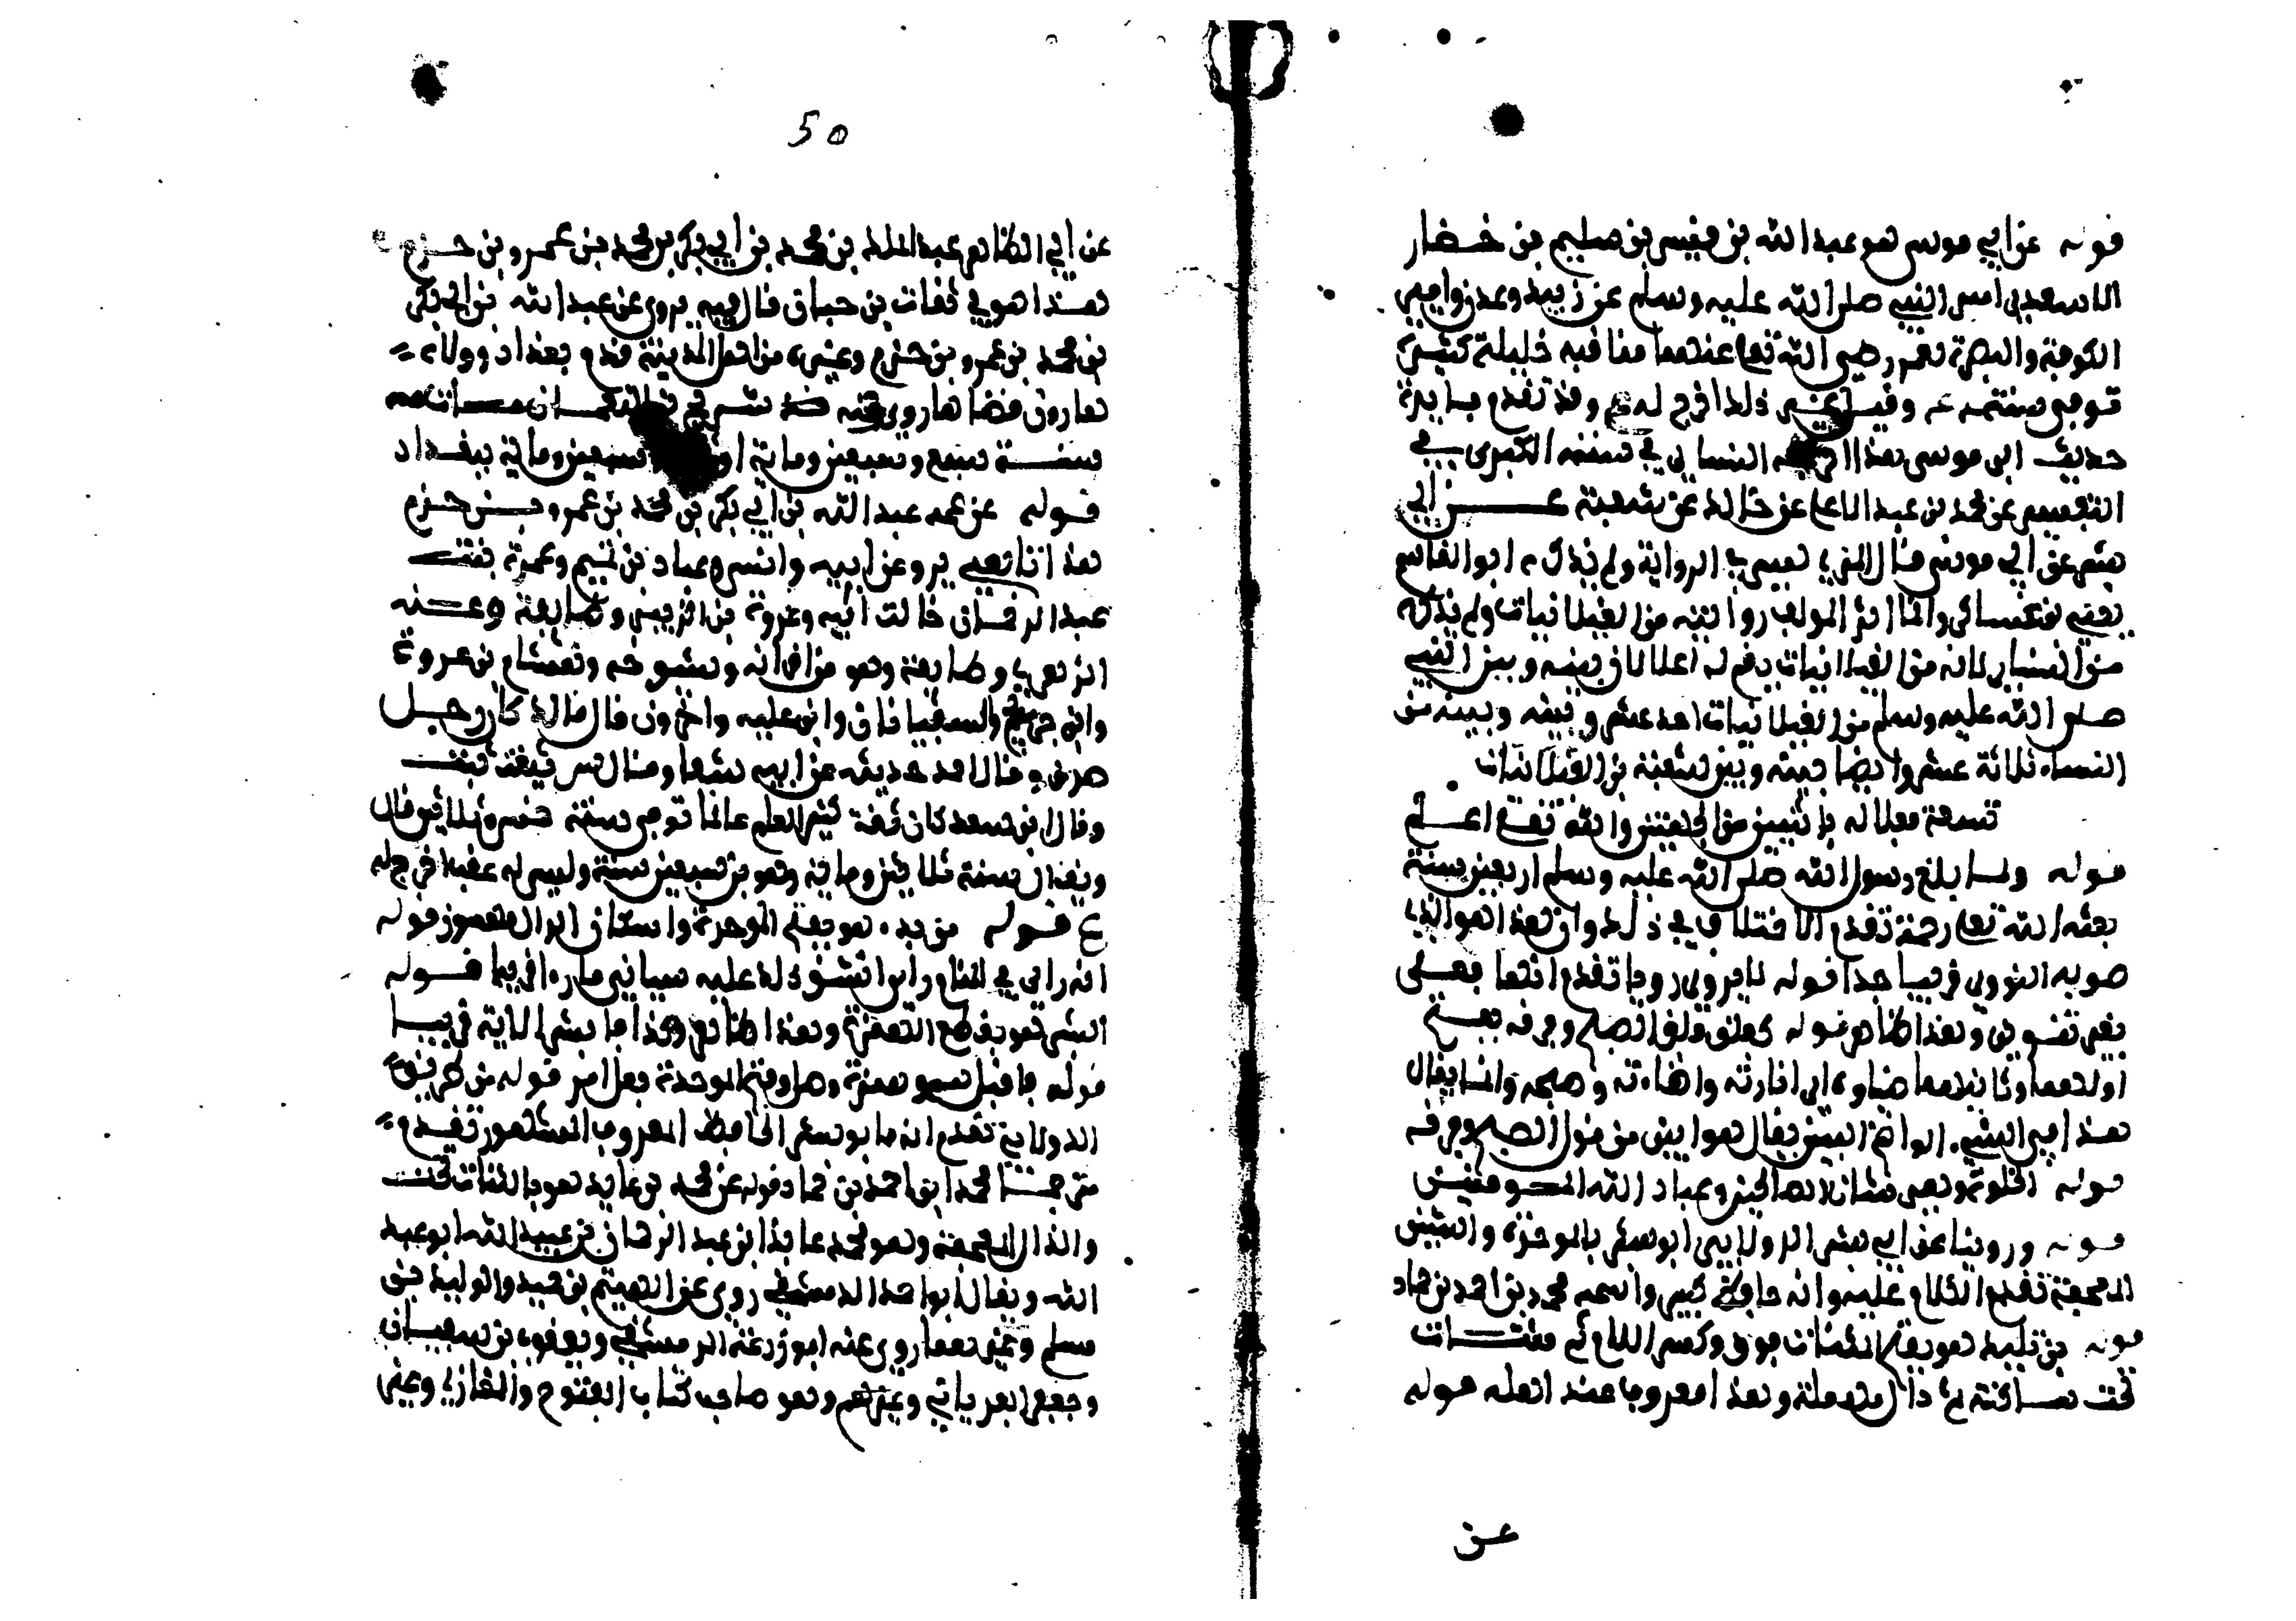 قوله عن ابي موسى هو عبد الله بن قيس بن سليم بن حضار
الاشعري امير النبي صلى الله عليه وسلم على زبيد وعدن وامير
الكوفة والبصرة لعمر رضي الله تعالى عنهما مناقبه جليلة كثيرة
توفي سنة وقيل غير ذلك اخرج له ع وقد تقدم
حديث ابي موسى هذا النسائي في سننه الكبرى في
التفسير عن محمد بن عبد الاعلى عن خالد عن شعبة عن ابي
بشر عن ابي موسى قال المزي ليس في الرواية ولم يذكره ابو القاسم
يعني ابن عساكر وانما اثر المولف روايته من الغيلانيات ولم يذكره
من النسائي لانه من الغيلانيات يقع له اعلا لان بينه وبين النبي
صلى الله عليه وسلم من الغيلانيات احد عشر وبينه وبينه من
النساء ثلاثة عشر وايضا بينه وبين شعبة من الغيلانيات
تسعة فعلا له باثنين من الجهتين والله تعالى اعلم
قوله ولما بلغ رسول الله صلى الله عليه وسلم اربعين سنة
بعثه الله تعالى رحمة تقدم الاختلاف في ذلك وان هذا هو الذي
صوبه النووي قريبا جدا قوله
بغير تنوين وهذا ظاهر قوله كفلق فلق الصبح وفرقه بفتح
اولهما وثانيهما ضياؤه اي انارته واضاءته وصحه وانما يقال
هذا في الشيء الواضح البين يقال هو ابين من فلق الصبح وفرقه
قوله الخلوة وهي شان الصالحين وعباد الله
قوله وروينا عن ابي بشر الدولابي ابو بشر بالموحدة والشين
المعجمة تقدم الكلام عليه وانه حافظ كبير واسمه محمد بن احمد بن حماد
قوله بن تليد هو بفتح المثناة فوق وكسر اللام ثم مثناة
تحت ساكنة ثم دال مهملة وهذا معروف عند اهله قوله
عن
50
عن ابي الطاهر عبد الملك بن محمد بن ابي بكر بن محمد بن عمرو بن حزم
هذا هو في ثقات بن حبان قال فيه يروي عن عبد الله بن ابي بكر
بن محمد بن عمرو بن حزم وغيره من اهل المدينة قدم بغداد وولاه
هارون قضاها روى عنه
سنة سبع وسبعين وماية او سبعين وماية ببغداد
قوله عن عمه عبد الله بن ابي بكر بن محمد بن عمرو بن حزم
هذا تابعي يروي عن ابيه وانس وعباد بن تميم وعمرة بنت
عبد الرحمان خالت ابيه وعروة بن الزبير وطايفة وعنه
الزهري وطايفة وهو من اقرانه وشيوخه وهشام بن عروة
وابن جريج والسفيانان وابن علية واخرون قال مالك كان رجل
صدق وقال احمد حديثه عن ابيه شفا وقال س ثقة ثبت
وقال ابن سعد كان ثقة كثير العلم عالما توفي سنة خمس وثلاثين قال
ويقال سنة ثلاثين وماية وهو بن سبعين سنة وليس له عقب اخرج له
ع قوله من بدء هو بفتح الموحدة واسكان الدال مهموز قوله
انه راى في المنام رايا فشق ذلك عليه سياتي ماراه قريبا قوله
ابشر هو بقطع الهمزة وهذا ظاهر وكذا فابشر الاتية قريبا
قوله فاقبل هو بهمزة وصل وفتح الموحدة فعل امر قوله من طريق
الدولابي تقدم انه ابو بشر الحافظ المعروف المشهور تقدم
مترجما محمد ابن احمد بن حماد قوله عن محمد بن عايذ هو بالمثناة تحت
والذال المعجمة وهو محمد بن عايذ ابن عبد الرحمان بن عبيد الله ابو عبد
الله ويقال ابو احمد الدمشقي روى عن الهيثم بن حميد والوليد بن
مسلم وغيرهما روى عنه ابو زرعة الدمشقي ويعقوب بن سفيان
وجعفر الفريابي وغيرهم وهو صاحب كتاب الفتوح والمغازي وغير